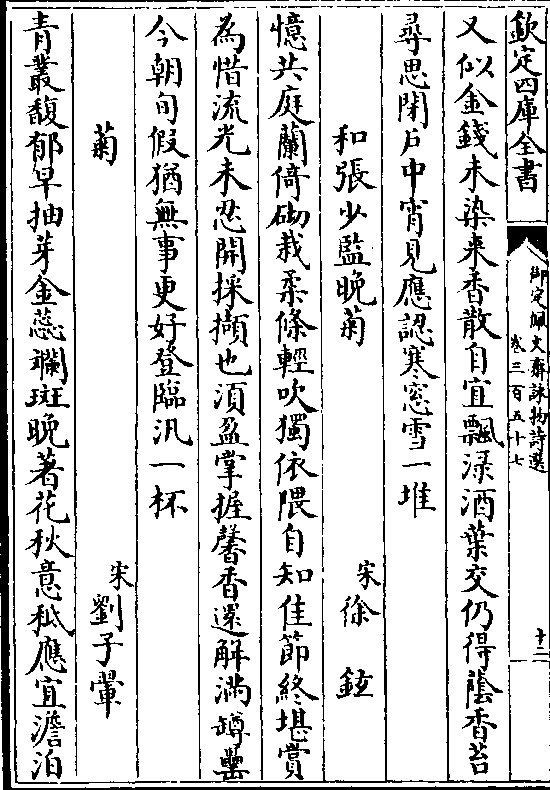 欽定四庫全書
御定佩文齋詠物詩選
卷三百五十七
十二
又似金錢未染來香散自宜飄渌酒葉交仍得蔭香苔
尋思閉戶中宵見應認寒窓雪一堆
和張少監晚菊
宋徐鉉
憶共庭蘭倚砌栽柔條輕吹獨依隈自知佳節終堪賞
為惜流光未忍開採擷也須盈掌握馨香還解滿罇罍
今朝旬假猶無事更好登臨汎一杯
菊
宋劉子翬
青叢馥郁早抽芽金蕊斕斑晚著花秋意秪應宜澹泊